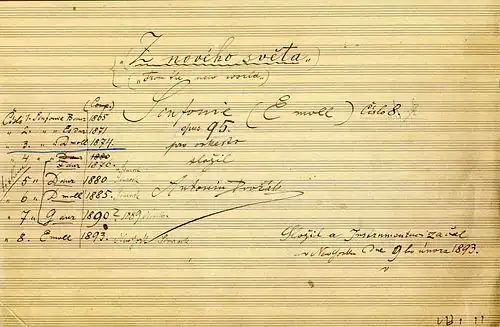 „Z nového světa“
(„From the new world.“)
Sinfonie (E moll) Číslo 8.
opus 95.
pro orkestr
složil
Antonín Dvořák
(Comp.)
Číslo 1. Sinfonie B dur 1865
„ 2. „ Es dur 1871
„ 3. „ D moll 1874.
„ 4 „ D dur 1880
F dur
„ 5 „ D dur 1880
„ 6 „ D moll 1885.
„ 7 „ G dur 1890 1889
„ 8. E moll 1893. New York
Složil a Instrumentaci začal
v New Yorku Dne 9ho února 1893.